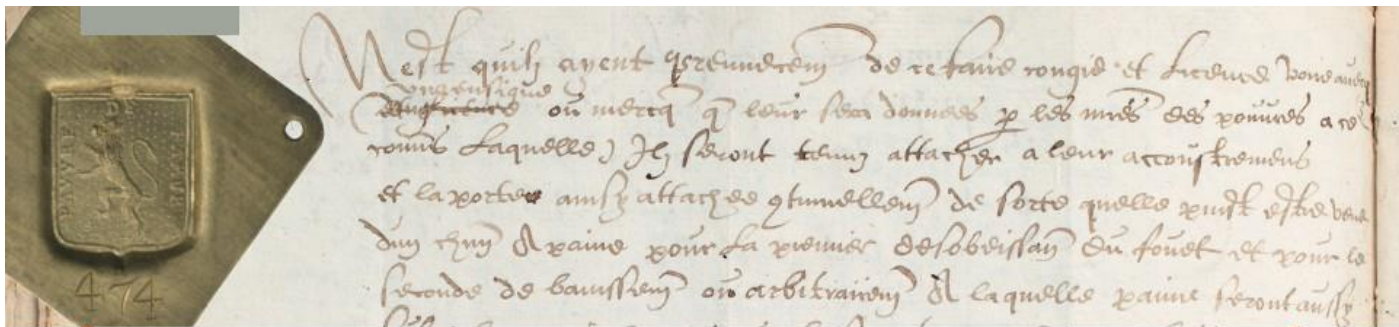 PAVVRE
474
N'est quilz ayent p̃rennecem̃ de ce faire congie et Licence
enseigne
ou mercq̃ q̃ leur sera donnees p les mrẽs des pouures a ce
comis Laquelle Ilz seront tenuz attacher a leur accoustremens
et la porter ainsy attachee ɔtinuellem̃ de sorte quelle puist estre veue
dun chũn A paine pour la premier desobeissan̄ du fouet et pour le
seconde de banissem̃ ou arbitrairem̃ A laquelle paine seront aussy